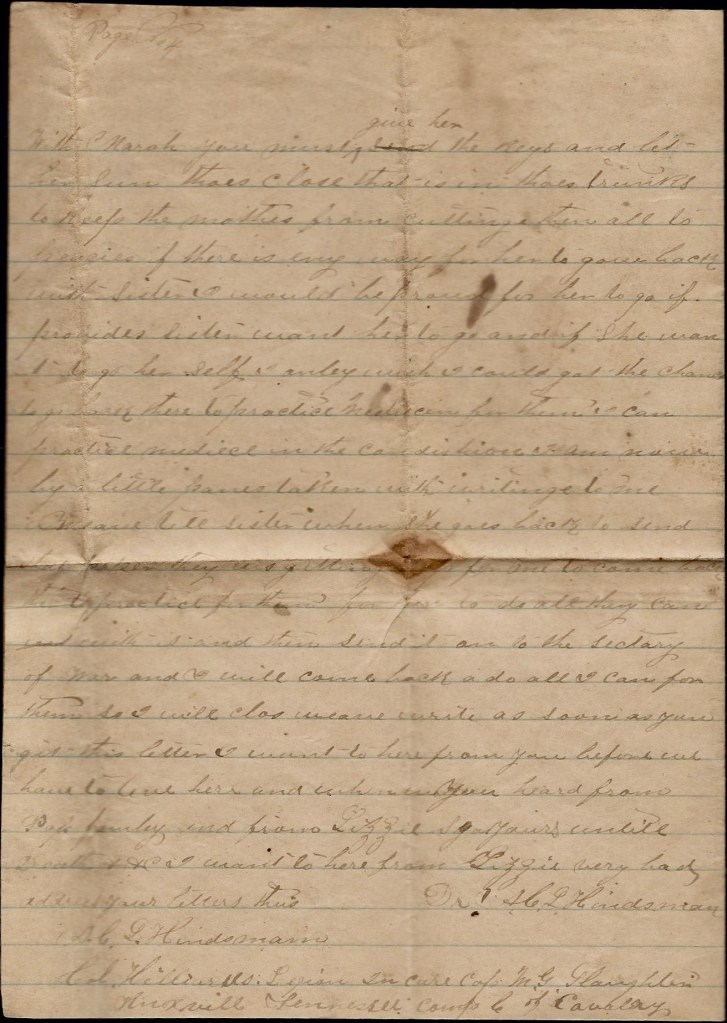 Page No 4
give her
With Marah you must send the keys and let
her sun thoes close that is in thoes trunks
to keep the mothes from cutting them all to
peacies if there is eny way for her to gow back
with sister I would be proud for her to go if
provides sister want her to go and if she wan
t to go her self I anley wish I could got the chance
to go back there to practice medicin for them I can
practice mediece in the condishion I am now in
by a little panes taken with writinge to me
tell sister when she goes back to send
they was getting for me to come back
there to practice for them for her to do all they can
with it and then send it on to the sectary
of War and I will come back a do all I can for
them so I will clos weave write as soon as you
git this letter I want to here from you before we
have to leve here and when you heard from
Pap family and from Lizzie I ga yours untill
death I want to here from Lizzie very bad
address your letters thus Dr. H C L Hindsman
H. C. L. Hindsmann
Col. Hilliards Legion in care Cap M G Slaughter
Knoxvill Tennessee comp C of Cavalry